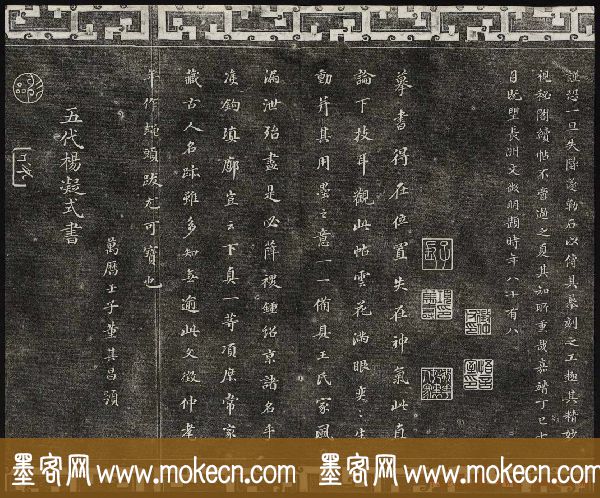 逕恐一旦失隊遂勒石以傳其摹刻之工極其精妙
視秘閣續帖不啻過之夏其知所重哉嘉靖丁巳七
月既望長洲文徵明題時年八十有八
摹書得在位置失在神氣此直
論下技耳觀此帖雲花滿眼奕奕生
動并其用墨之意一一備具王氏家風
漏泄殆盡是必薛稷鍾紹京諸名手
準鉤填廓豈云下真一等項庶常家
藏古人名跡雖多知無逾此文徵仲孝
年作蠅頭跋尤可寶也
萬曆壬子董其昌題
五代楊凝式書
墨客网 www.mokecn.com 墨客网 www.mokecn.com